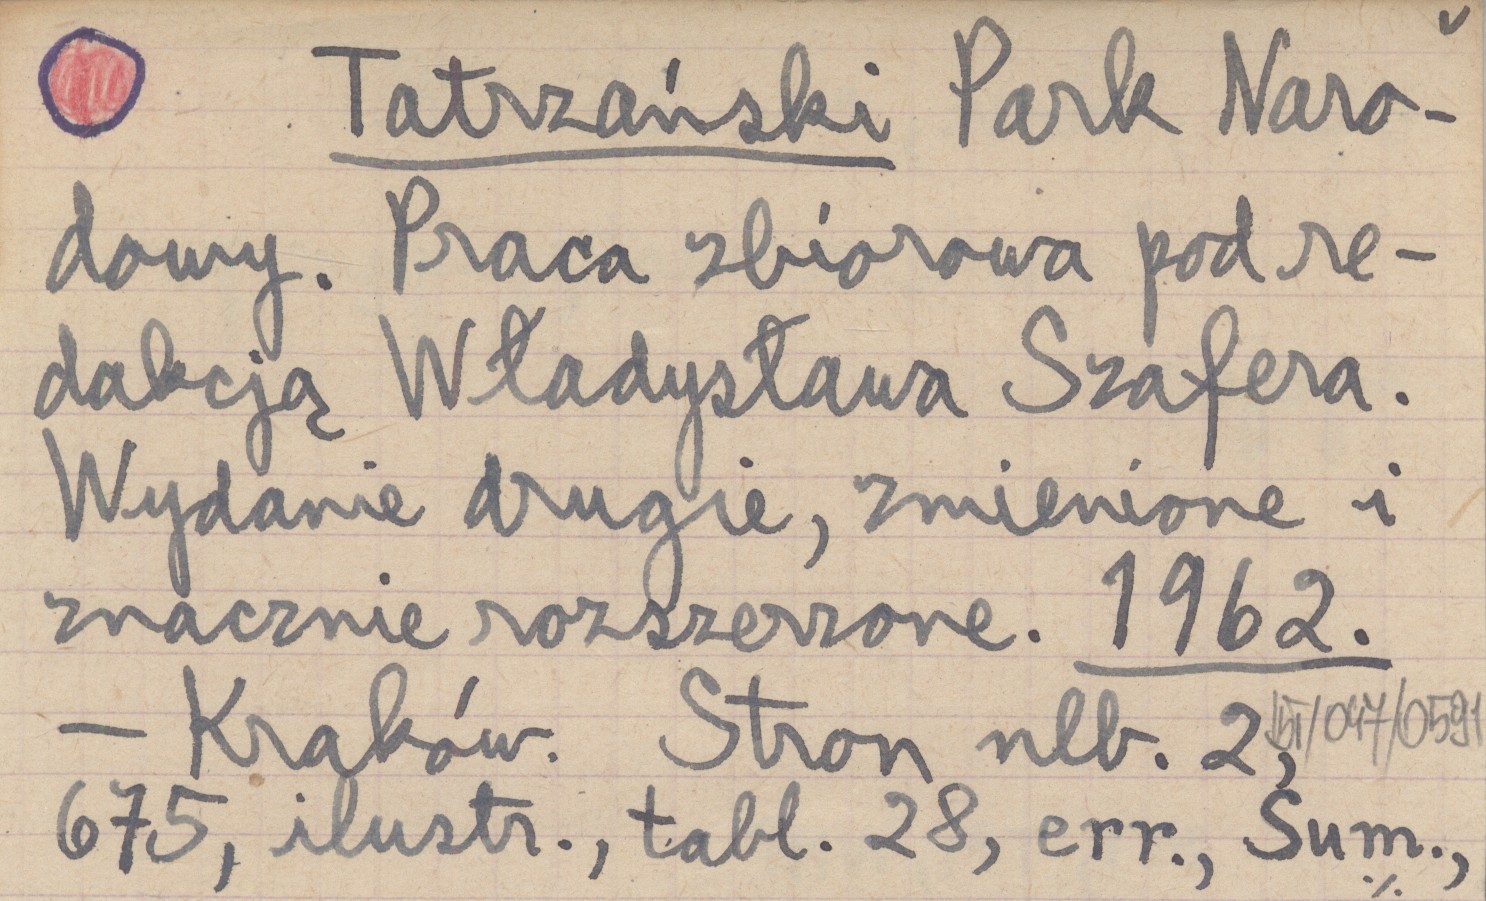 Tatrzański Park Naro-
dowy. Praca zbiorowa pod re-
dakcją Władysława Szafera.
Wydanie drugie, zmienione i
znacznie rozszerzone. 1962.
— Kraków. Stron nlb. 2,
/047/0591
675, ilustr., tabl. 28, err., Sum.,
./.